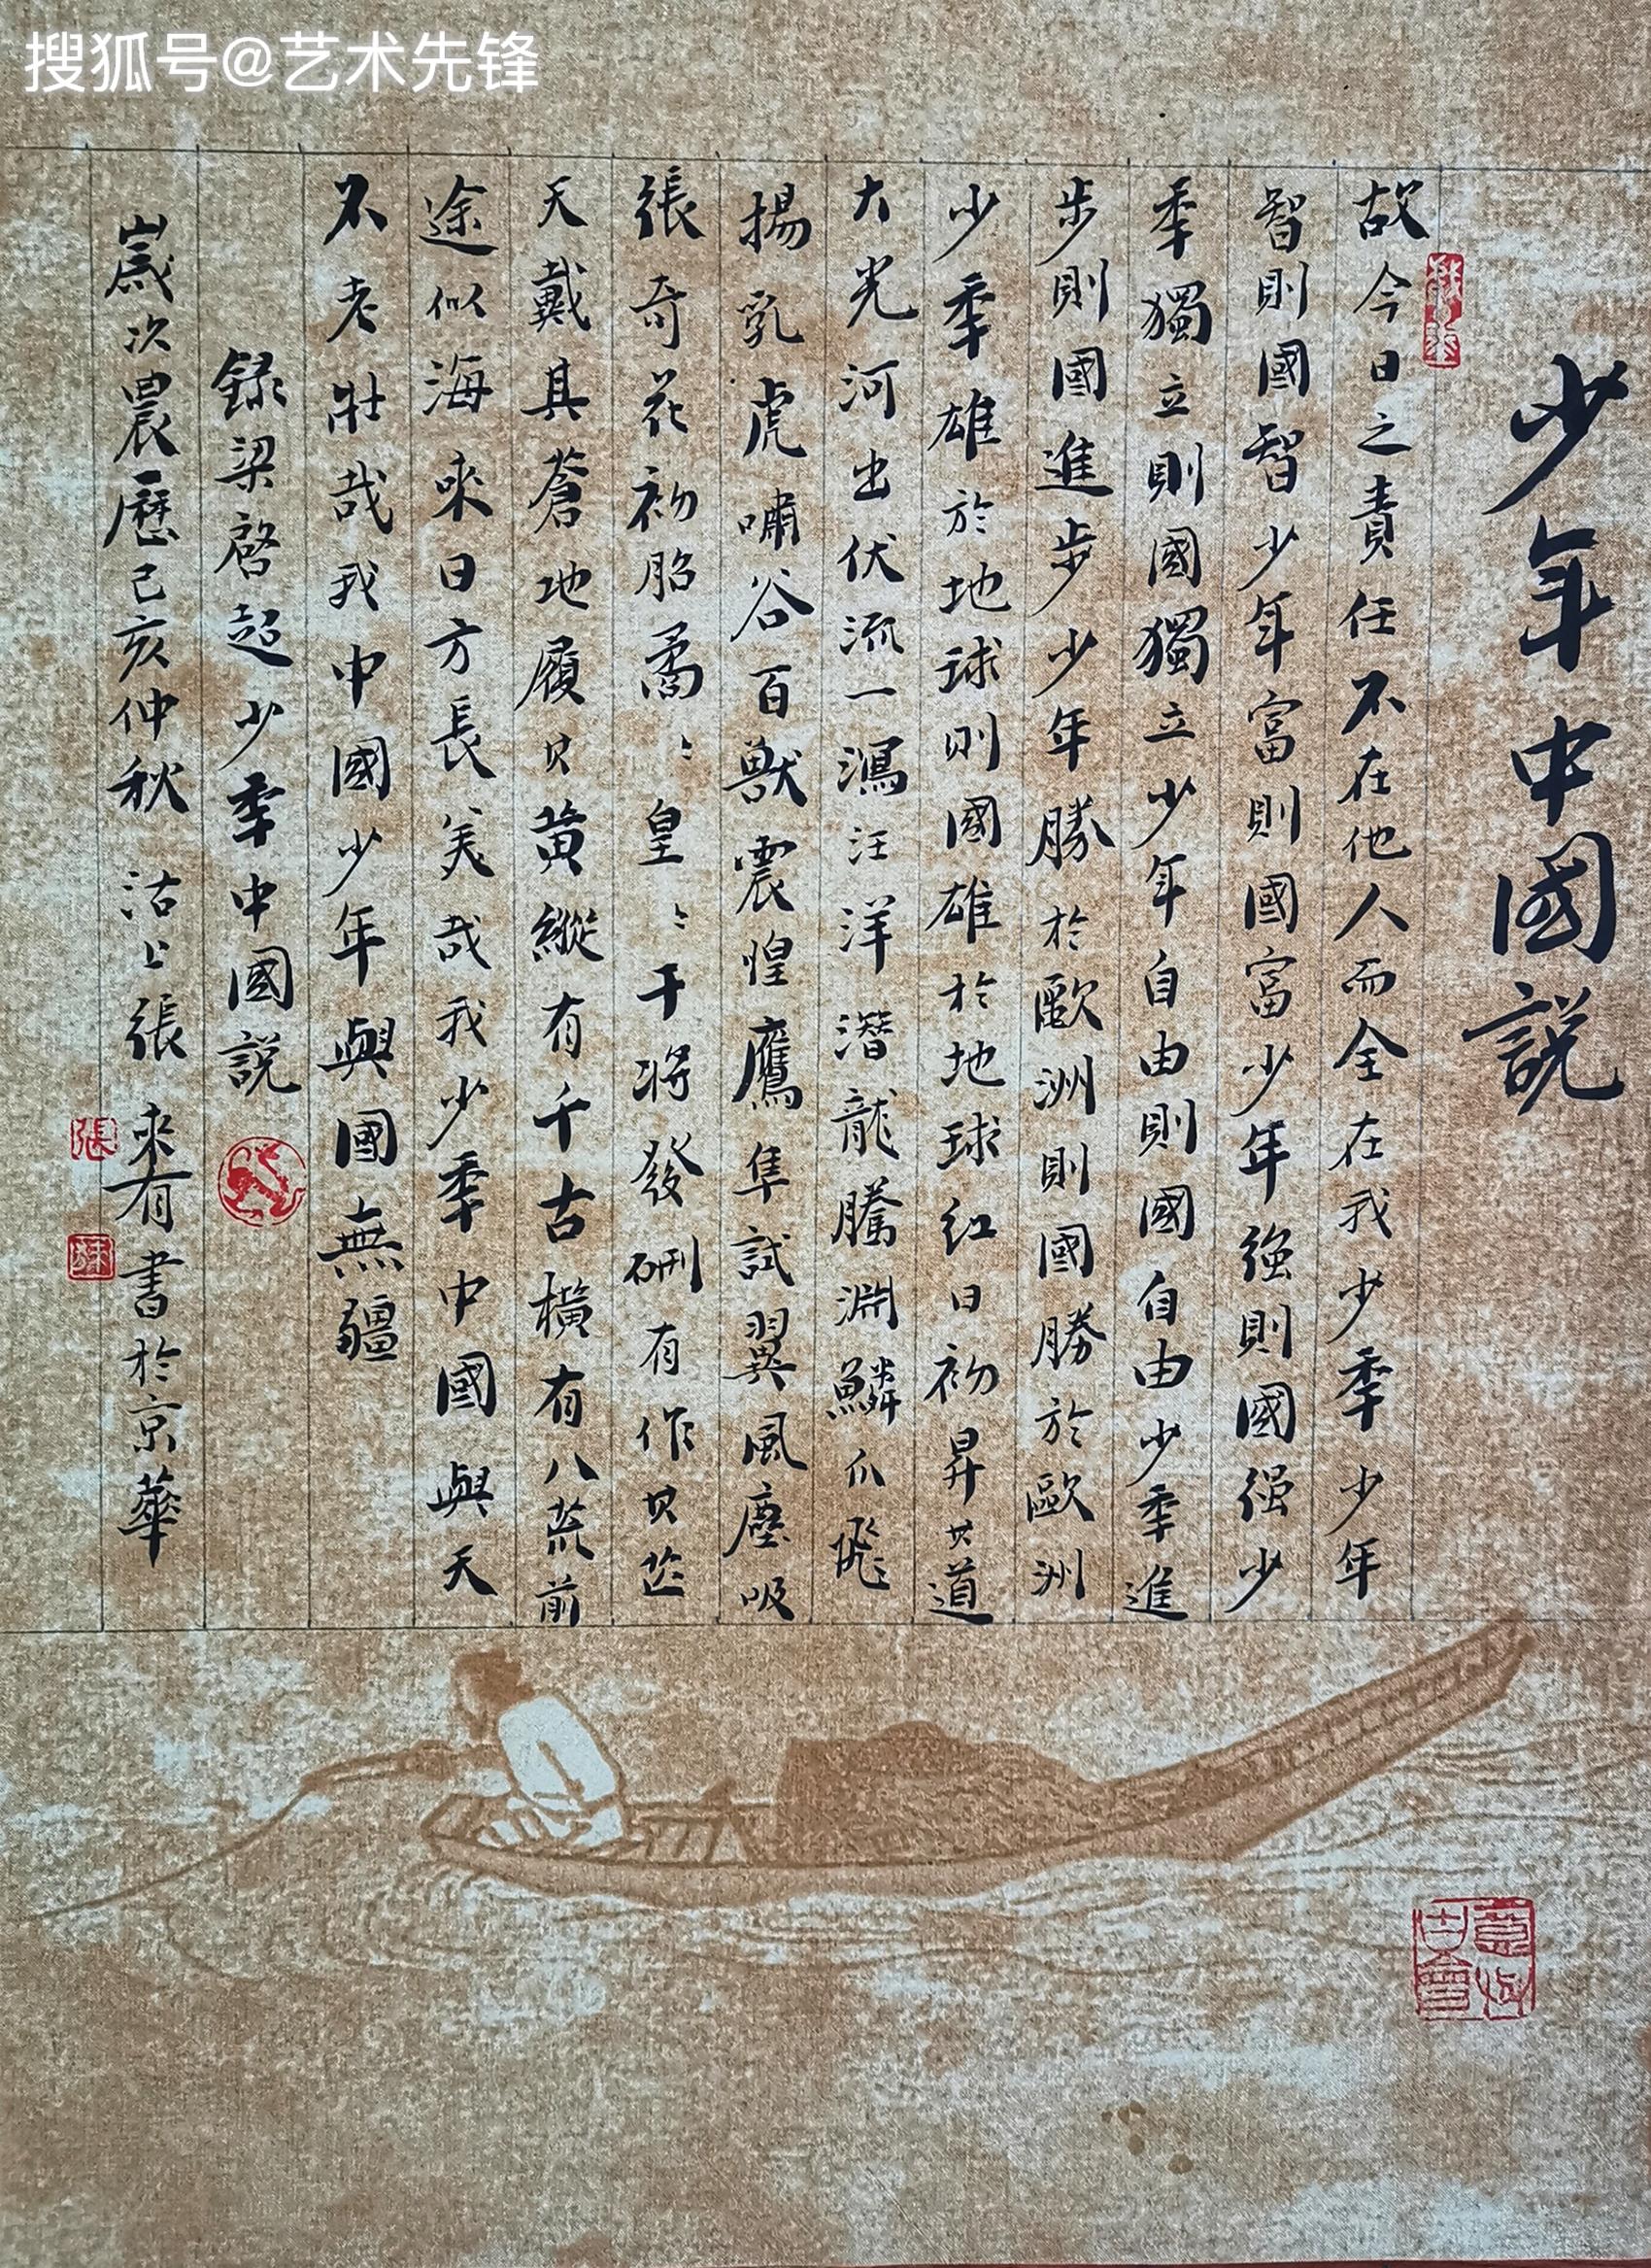 搜狐号@艺术先锋
少年中國説
故今日之責任不在他人而全在我少秊少年
智則國智少年富則國富少年強則國强少
秊獨立則國獨立少年自由則國自由少秊進
步則國進步少年勝於歐洲則國勝於歐洲
少秊雄於地球則國雄於地球紅日初昇其道
大光河出伏流一瀉汪洋潛龍騰淵鱗爪飛
揚乳虎嘯谷百獸震惶鷹隼試翼風塵吸
張奇花初胎矞〻皇〻干將發硎有作其芒
天戴其蒼地履其黃縱有千古橫有八荒前
途似海來日方長美哉我少秊中國與天
不老壯哉我中國少年與國無疆
錄梁啓超少秊中國説
歲次農歷己亥仲秋沽上張來有書於京華
張